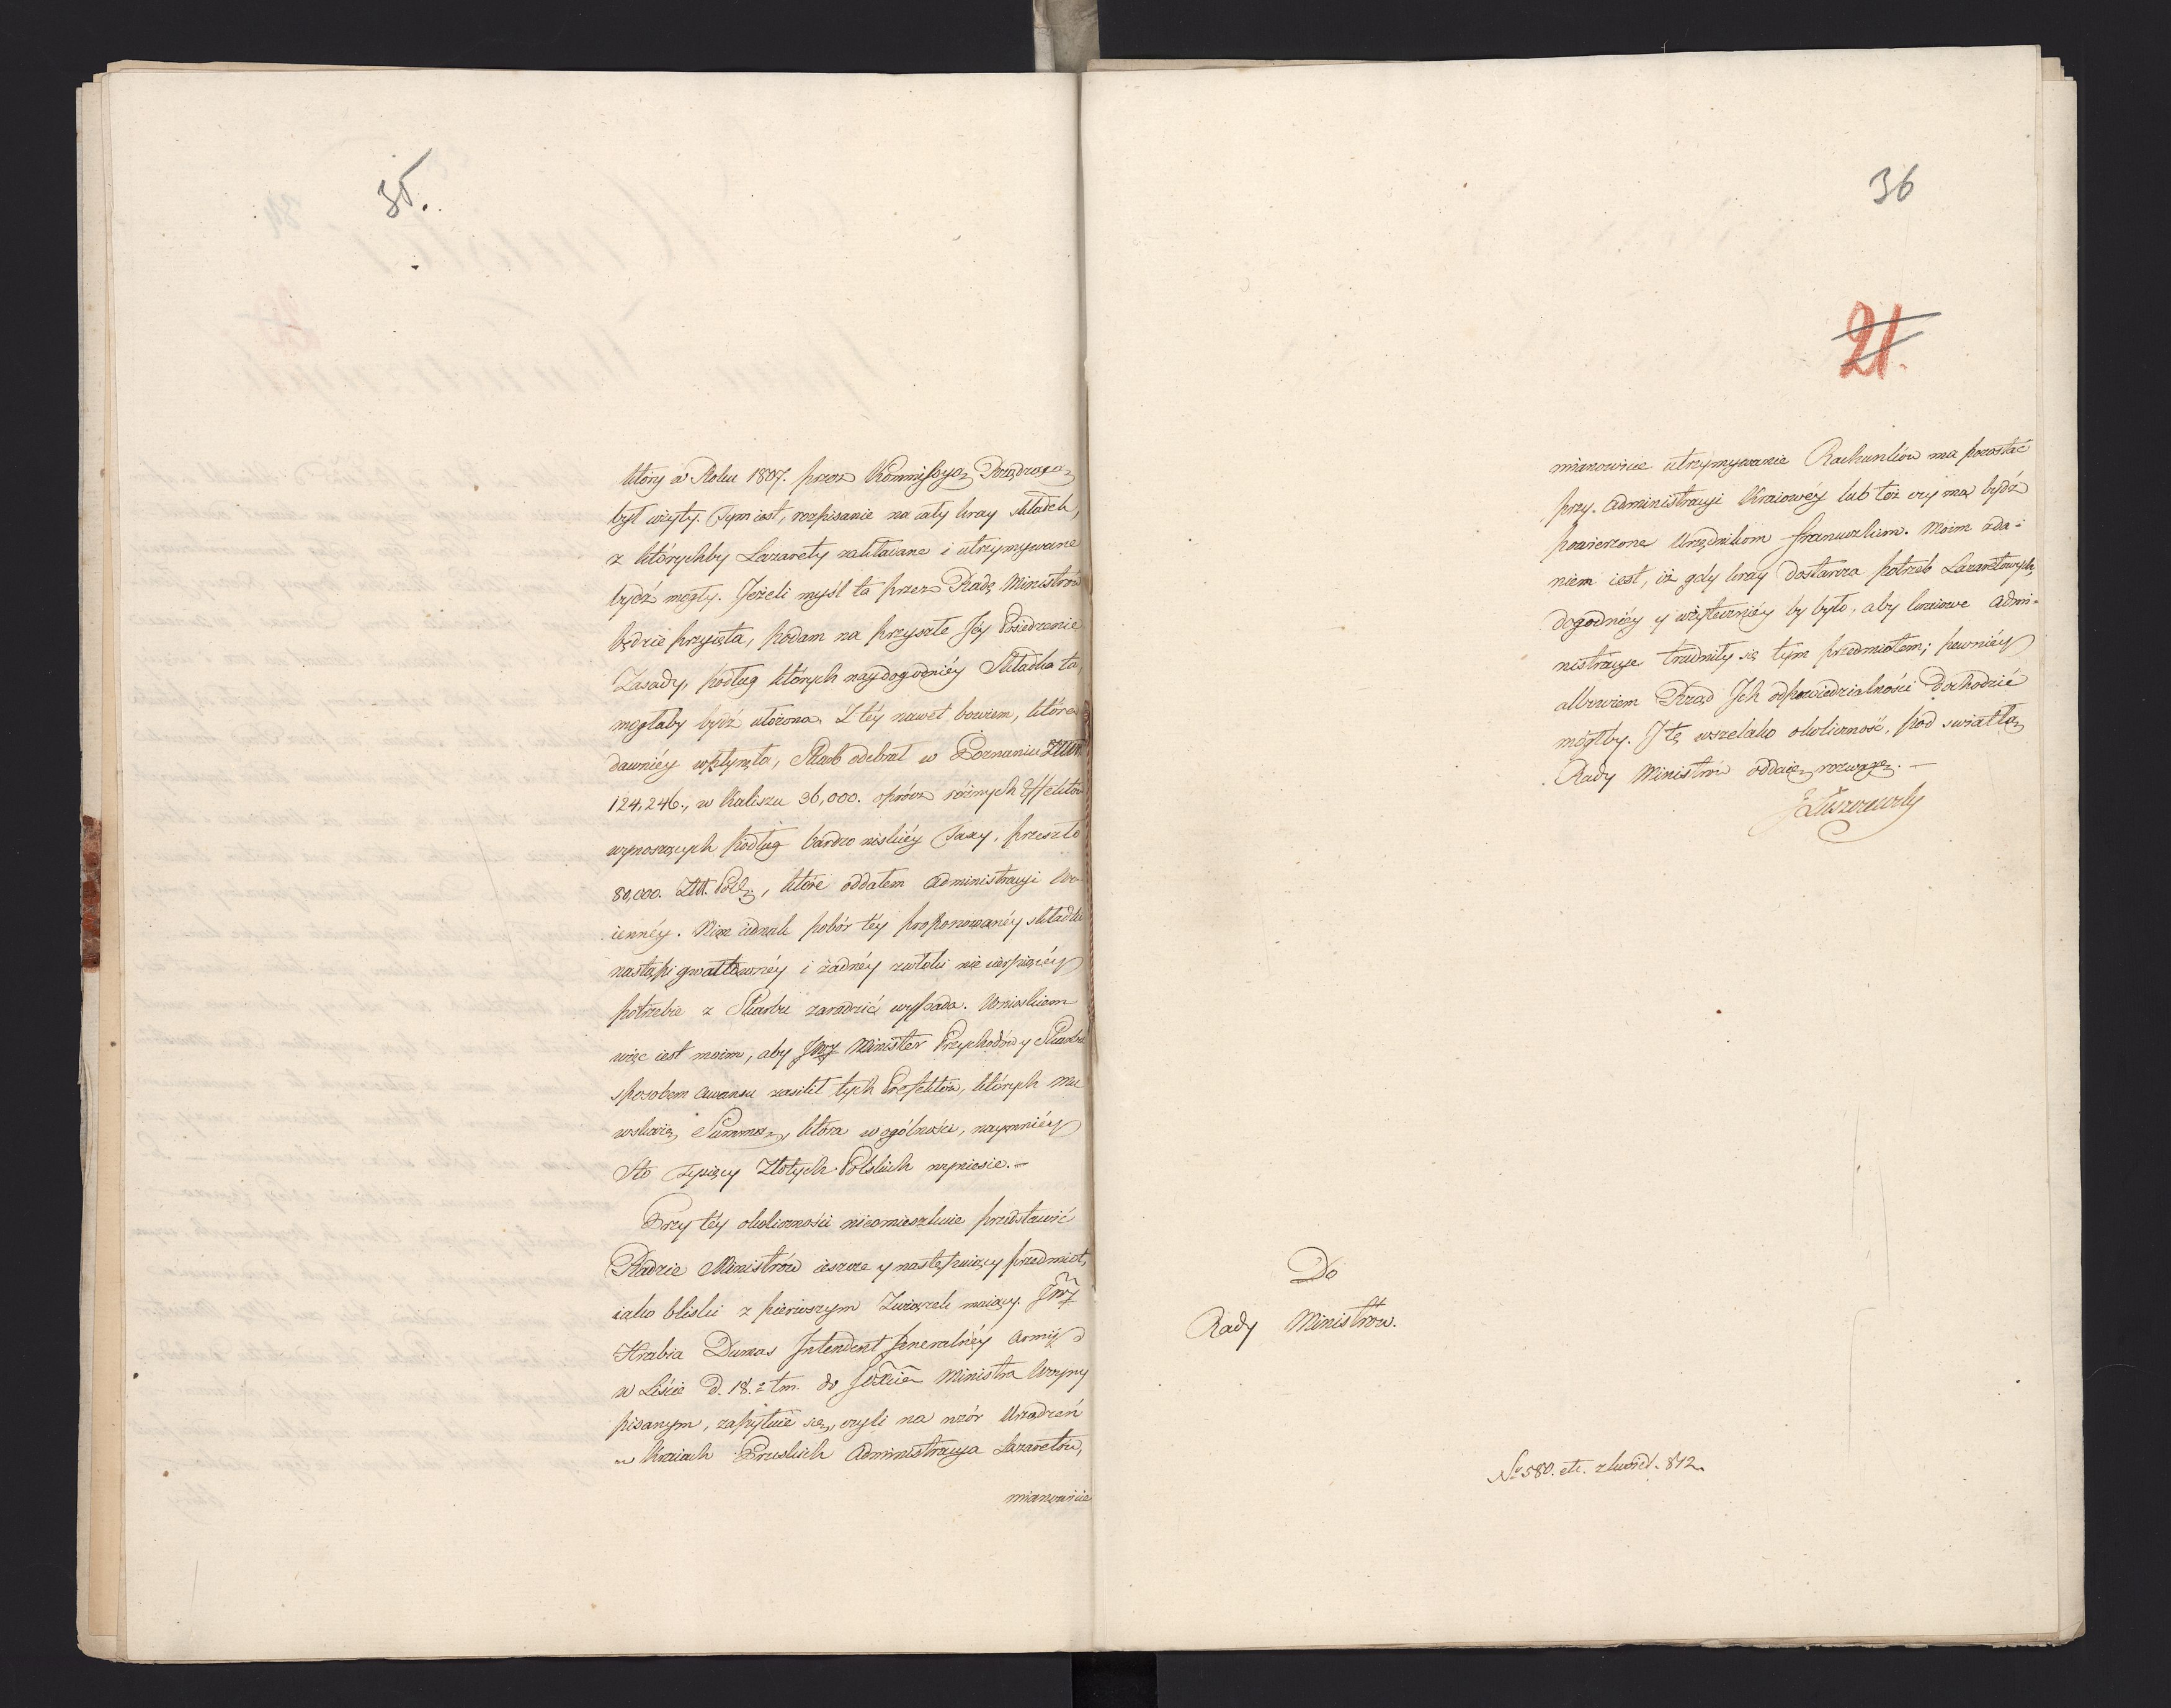 35.
który w Roku 1807. przez Kommissyą Rządzącą
był użyty. Tym iest, rozpisanie na cały kray składek,
z którychby Lazarety zakładane i utrzymywane
bydź mogły. Jeżeli myśl ta przez Radę Ministrów
będzie przyięta, podam na przyszłe Jéy Posiedzenie
Zasady, podług których naydogodniéy Składka ta
mogłaby bydź ułożona. Z téy nawet bowiem, która
dawniéy wpłynęła, Skarb odebrał w Poznaniu
124,246., w Kaliszu 36,000. oprócz różnych Effektów
wynoszących podług bardzo niskiéy Taxy, przeszło
80,000. Złt. Pol., które oddałem Administracyi Wo-
ienney. Nim iednak pobór téy proponowanéy składki
nastąpi gwałtownéy i żadnéy zwłoki nie cierpiącéy
potrzebie z Skarbu zaradzić wypada. Wnioskiem
więc iest moim, aby JW Minister Przychodów y Skarbu
sposobem awansu zasilił tych Prefektów, których mu
wskażę Summą, która w ogólności, naymniéy
Sto Tysięcy Złotych Polskich wyniesie.—
Przy téy okoliczności nieomieszkuię przedstawić
Radzie Ministrów ieszcze y następuiący przedmiot,
iako bliski z pierwszym Związek maiący. JW
Hrabia Dumas Intendent Jeneralnéy Armij
w Liście d. 18. z. tm. do JOXcia Ministra Woyny
pisanym, zapytuie się, czyli na wzór Urządzeń
w Kraiach Pruskich Administracya Lazaretów,
mianowicie
36
21.
mianowicie utrzymywanie Rachunków ma pozostać
przy Administracyi Kraiowéy lub też czy ma bydź
powierzone Urzędnikom francuzkim. Moim zda-
niem iest, iż gdy kray dostarcza potrzeb Lazaretowych,
dogodniéy y użyteczniéy by było, aby kraiowe Admi-
nistracye trudniły się tym przedmiotem; pewniéy
albowiem Rząd Ich odpowiedzialności dochodzić
mógłby. I tę wszelako okoliczność, pod światłą
Rady Ministrów oddaię rozwagę.—
JŁuszczewsky
Do
Rady Ministrów.
Nr 580. etc. z kwiet. 812.